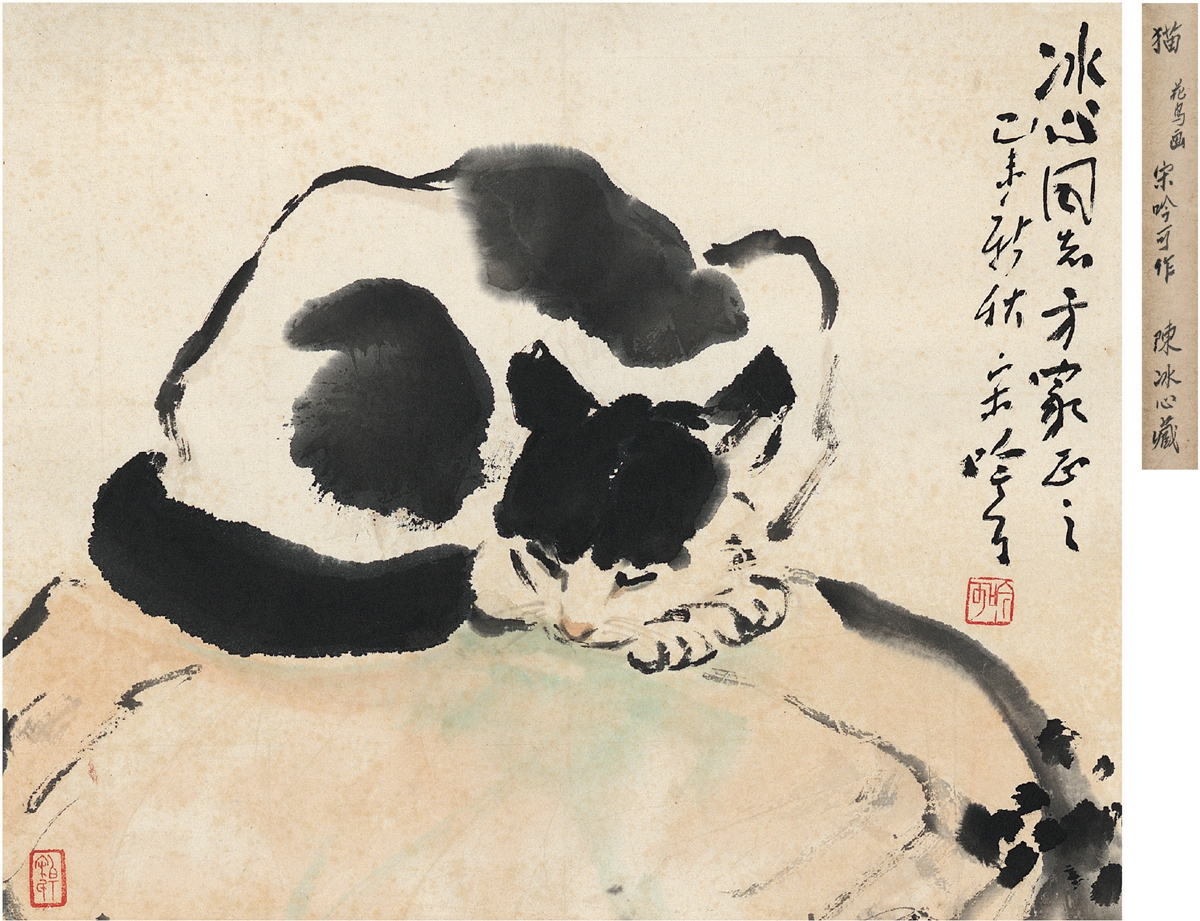 冰心同志方家正之
己未新秋 宋吟可
吟可
猫 花鸟画 宋吟可作 陳冰心藏